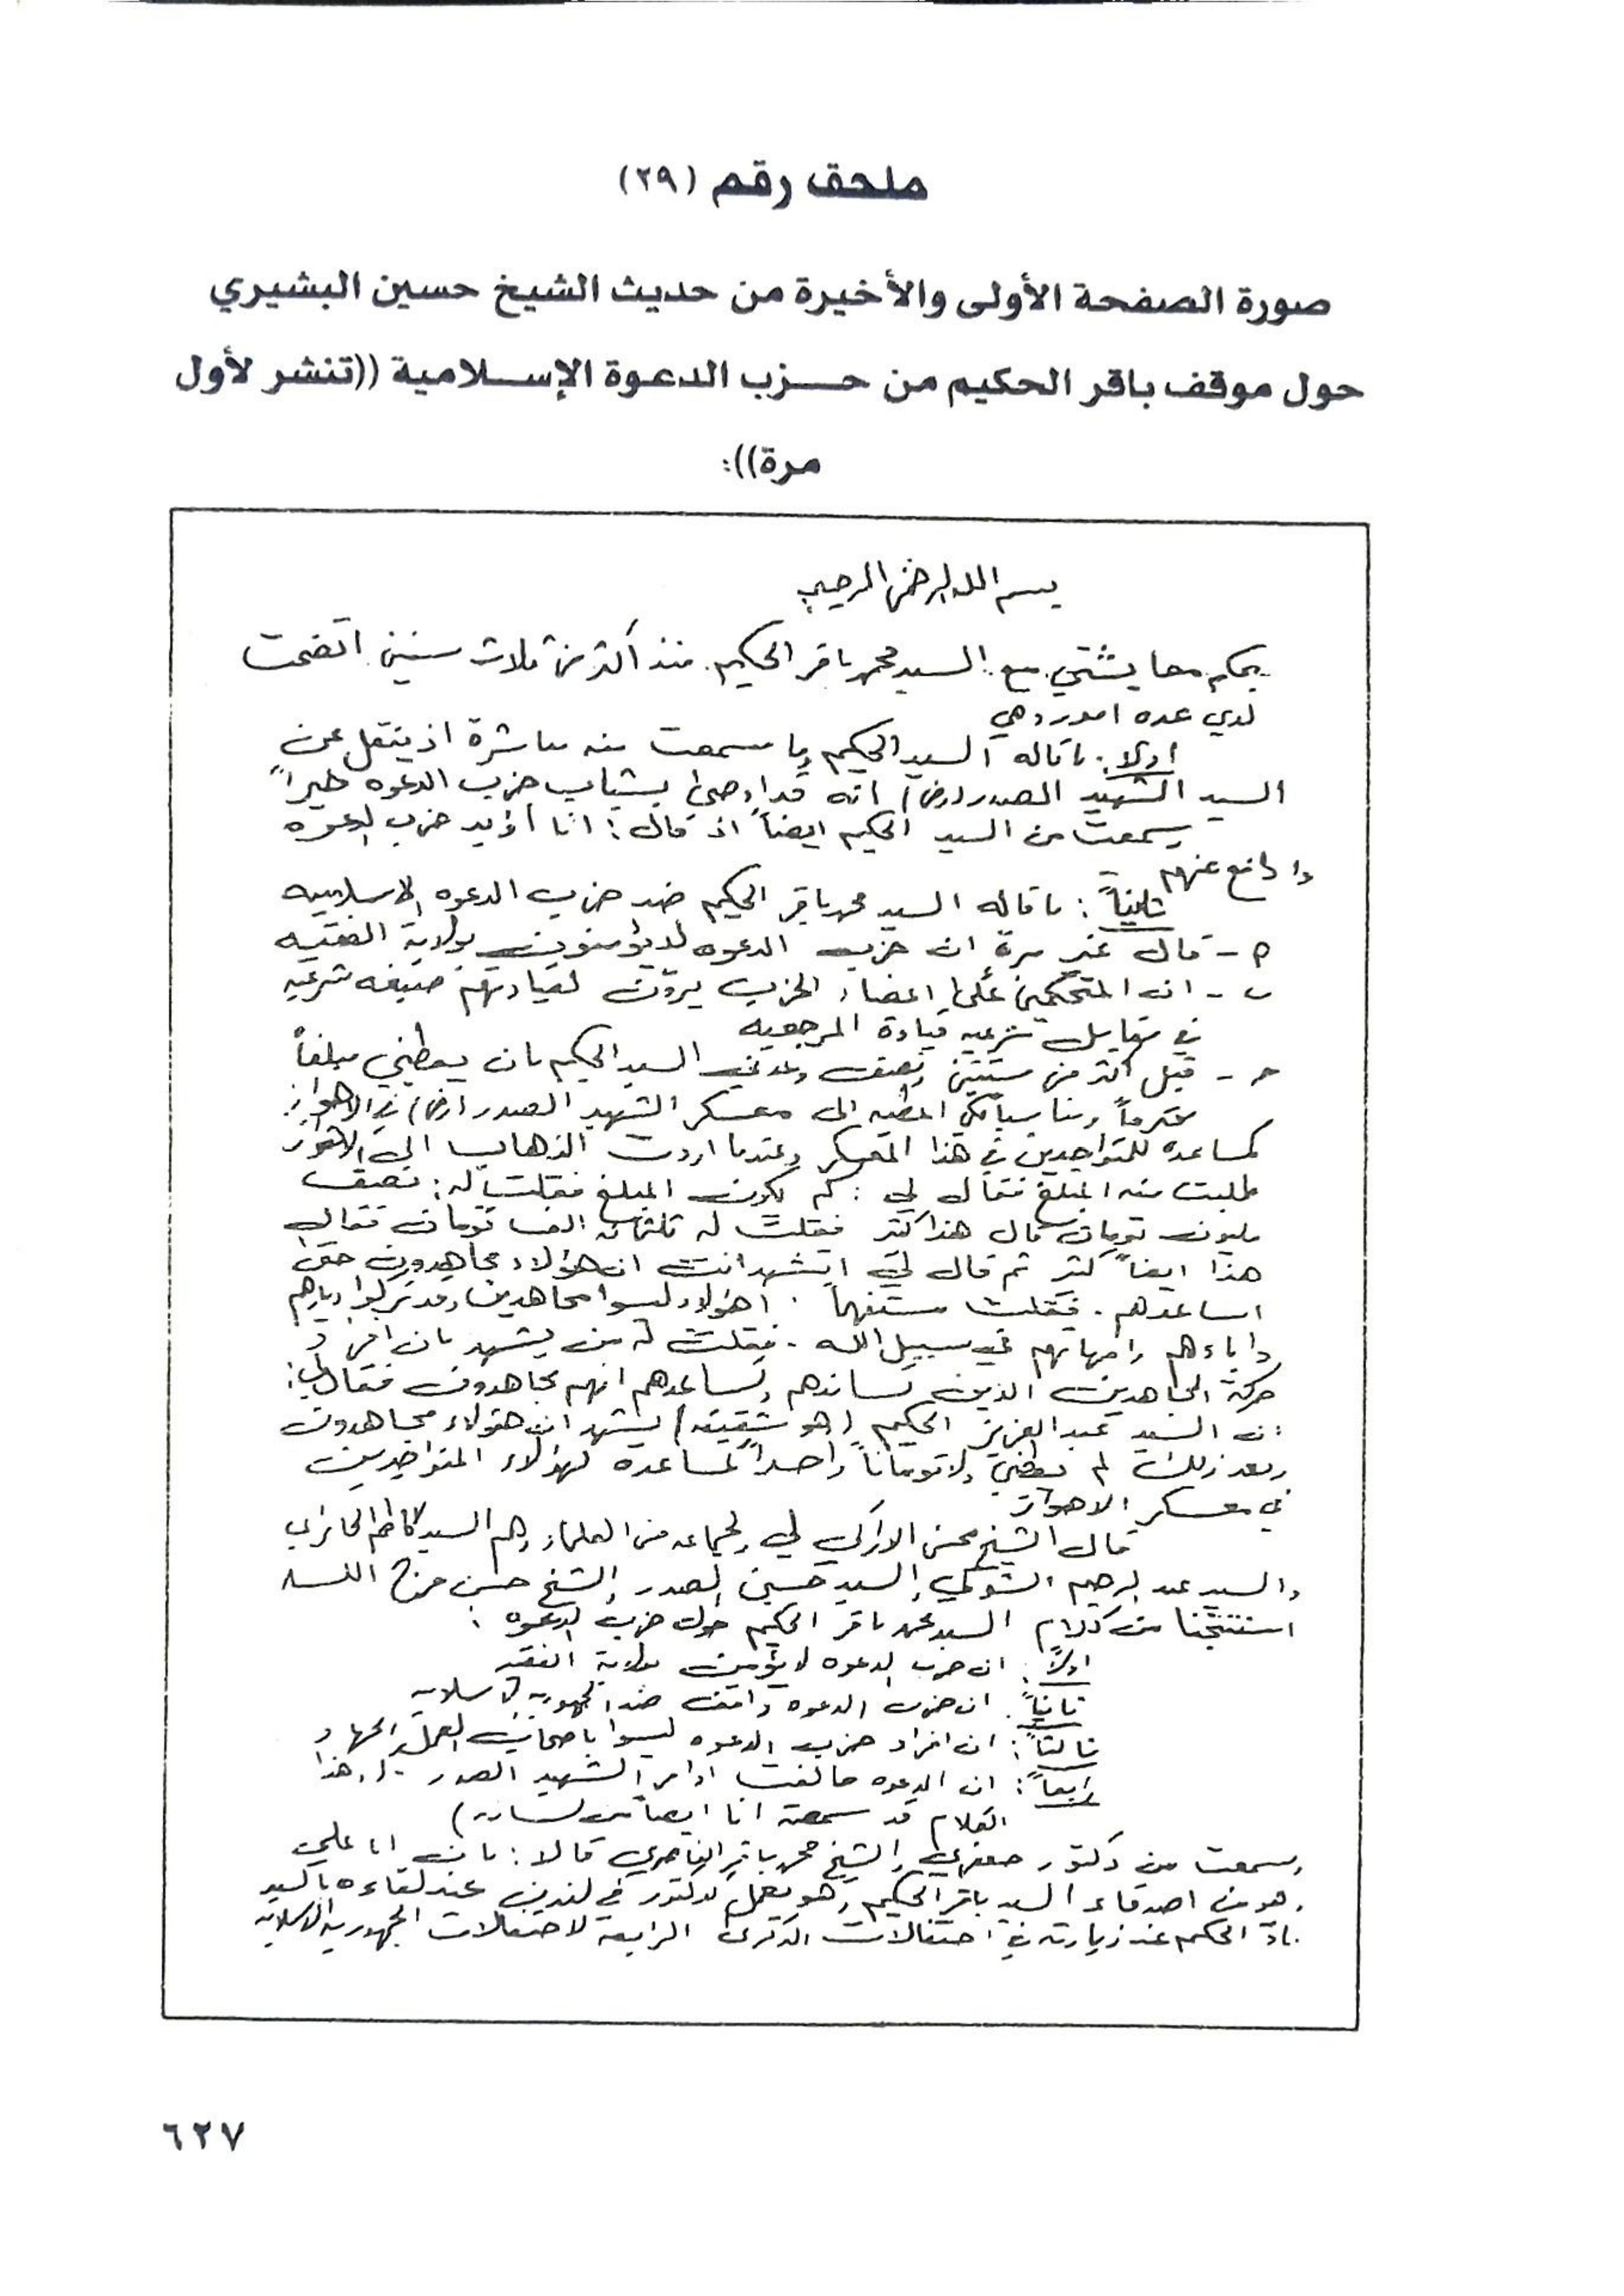 ملحق رقم (٢٩)
صورة الصفحة الأولى والأخيرة من حديث الشيخ حسين البشيري
حول موقف باقر الحكيم من حزب الدعوة الإسلامية ((تنشر لأول
مرة)):
بسم الله الرحمن الرحيم
بحكم معايشتي مع السيد محمد باقر الحكيم منذ أكثر من ثلاث سنين اتضحت
لدي عده امور وهي
اولا: ما قاله السيد الحكيم وما سمعت منه مباشرة اذ ينقل عن
السيد الشهيد الصدر (رض) انه قد اوصى بشباب حزب الدعوه خيراً
وسمعت من السيد الحكيم ايضاً اذ قال: انا اؤيد حزب الدعوه
وادافع عنهم
ثانياً: ما قاله السيد محمد باقر الحكيم ضد حزب الدعوه الاسلاميه
م - قال غير مرة ان حزب الدعوه لا يؤمنون بولاية الفقيه
ب - ان المتحكمين على اعضاء الحزب يرون لقيادتهم صيغه شرعيه
في مقابل شرعيه قيادة المرجعيه
حـ - قبل اكثر من سنتين ونصف وعدني السيد الحكيم بان يعطيني مبلغاً
محترماً ومناسباً لكي اعطيه الى معسكر الشهيد الصدر (رض) في الاهواز
كمساعده للمتواجدين في هذا المعسكر وعندما اردت الذهاب الى الاهواز
طلبت منه المبلغ فقال لي: كم يكون المبلغ فقلت له: نصف
مليون تومان قال هذا كثير فقلت له ثلثمائة الف تومان فقال
هذا ايضاً كثير ثم قال لي اتشهد انت ان هؤلاء مجاهدون حتى
اساعدهم. فقلت مستفهماً. اهؤلاء ليسوا مجاهدين وقد تركوا ديارهم
واباءهم وامهاتهم في سبيل الله. فقلت له من يشهد بان افراد
حركة المجاهدين الذين تساندهم وتساعدهم انهم مجاهدون فقال لي:
ان السيد عبد العزيز الحكيم (هو شقيقه) يشهد ان هؤلاء مجاهدون
وبعد ذلك لم يعطني ولا توماناً واحداً لمساعده لهؤلاء المتواجدين
في معسكر الاهواز
قال الشيخ محسن الاراكي لي ولجماعه من العلماء وهم السيد كاظم الحائري
والسيد عبد الرحيم الشوكي والسيد حسين الصدر والشيخ حسن فرج الله
استنتجنا من كلام السيد محمد باقر الحكيم حول حزب الدعوه:
اولاً: ان حزب الدعوه لا يؤمن بولاية الفقيه
ثانياً: ان حزب الدعوه واقف ضد الجمهوريه الاسلاميه
ثالثاً: ان افراد حزب الدعوه ليسوا باصحاب العمل والجهاد
رابعاً: ان الدعوه خالفت اوامر الشهيد الصدر - (وهذا
الكلام قد سمعته انا ايضاً من لسانه)
وسمعت من دكتور جعفري والشيخ محمد باقر الناصري قالا: بان ابا علي
وهو من اصدقاء السيد باقر الحكيم وهو يعمل كدكتور في لندن عند لقاءه بالسيد
باقر الحكيم عند زيارته في احتفالات الذكرى الرابعه لاحتفالات الجمهورية الاسلاميه
٦٢٧